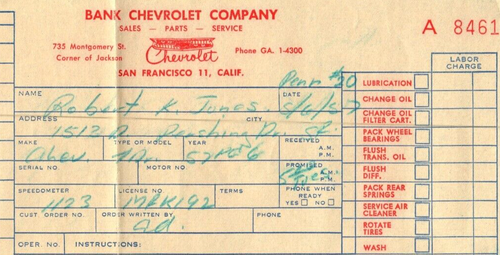 BANK CHEVROLET COMPANY
SALES — PARTS — SERVICE
A 8461
735 Montgomery St.
Corner of Jackson
Chevrolet
Phone GA. 1-4300
SAN FRANCISCO 11, CALIF.
LABOR CHARGE
LUBRICATION
NAME Robert K Jones DATE 5/6/57
CHANGE OIL
ADDRESS CITY
CHANGE OIL FILTER CART.
1512 Pershing Dr. SF.
PACK WHEEL BEARINGS
MAKE TYPE OR MODEL YEAR RECEIVED A.M. P.M.
Chev. 57
FLUSH TRANS. OIL
SERIAL NO. MOTOR NO. PROMISED A.M. P.M.
FLUSH DIFF.
SPEEDOMETER LICENSE NO. TERMS PHONE WHEN READY
PACK REAR SPRINGS
1123 MRK192 YES NO
SERVICE AIR CLEANER
CUST. ORDER NO. ORDER WRITTEN BY PHONE
ad.
ROTATE TIRES
OPER. NO. INSTRUCTIONS:
WASH